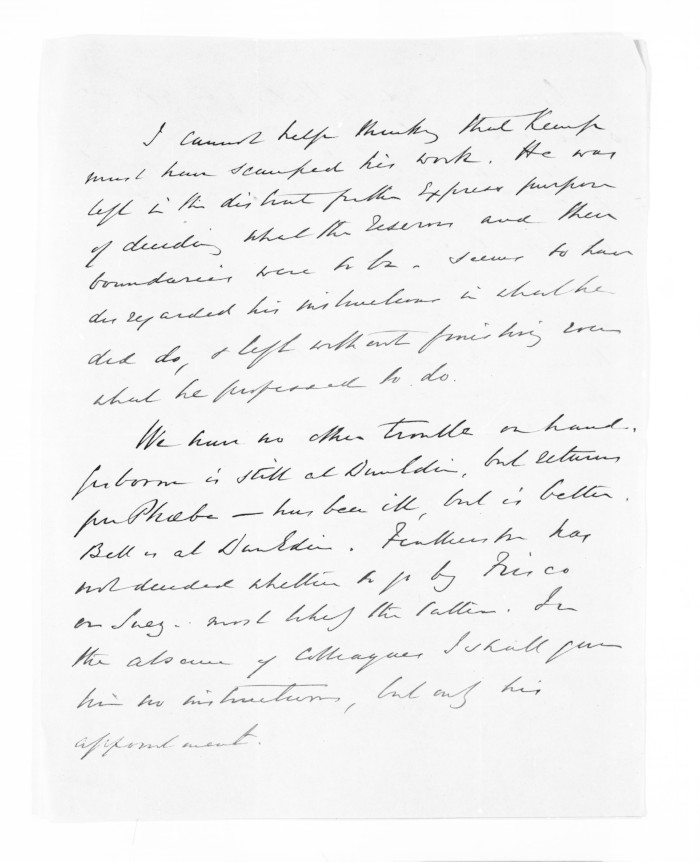 I cannot help thinking that Kemp
must have scamped his work. He was
left in the district for the express purpose
of deciding what the reserves and their
boundaries were to be. Seems to have
disregarded his instructions in what he
did do, & left without finishing even
what he professed to do.
We have no other trouble on hand.
Gisborne is still at Dunedin, but returns
per Phœbe — has been ill, but is better.
Bell is at Dunedin. Featherston has
not decided whether to go by Frisco
or Suez - most likely the latter. In
the absence of colleagues I shall give
him no instructions, but only his
appointment.